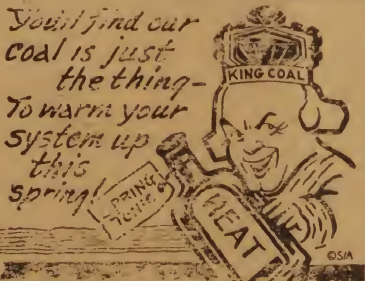 You'll find our
coal is just
the thing—
To warm your
system up
this
spring!
KING COAL
SPRING
TONIC
HEAT
©SIA